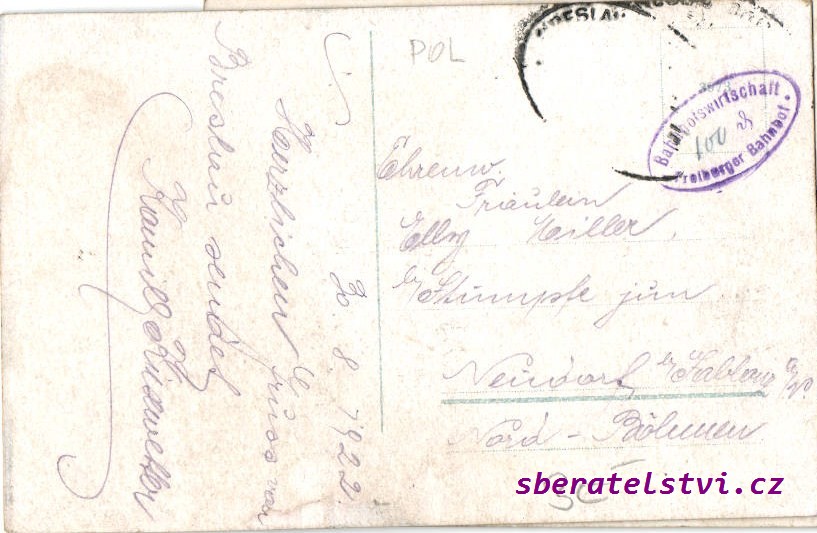 BRESLAU
POL
Bahnhofswirtschaft
100
Freiburger Bahnhof
30. 8. 1922.
Herzlichen Gruss von
Breslau sendet
Kamill
Ehrenw.
Fräulein
Elly Hiller,
b/ Stumpfe jun
Neudorf, b/ Gablonz a/N.
Nord-Böhmen
sberatelstvi.cz